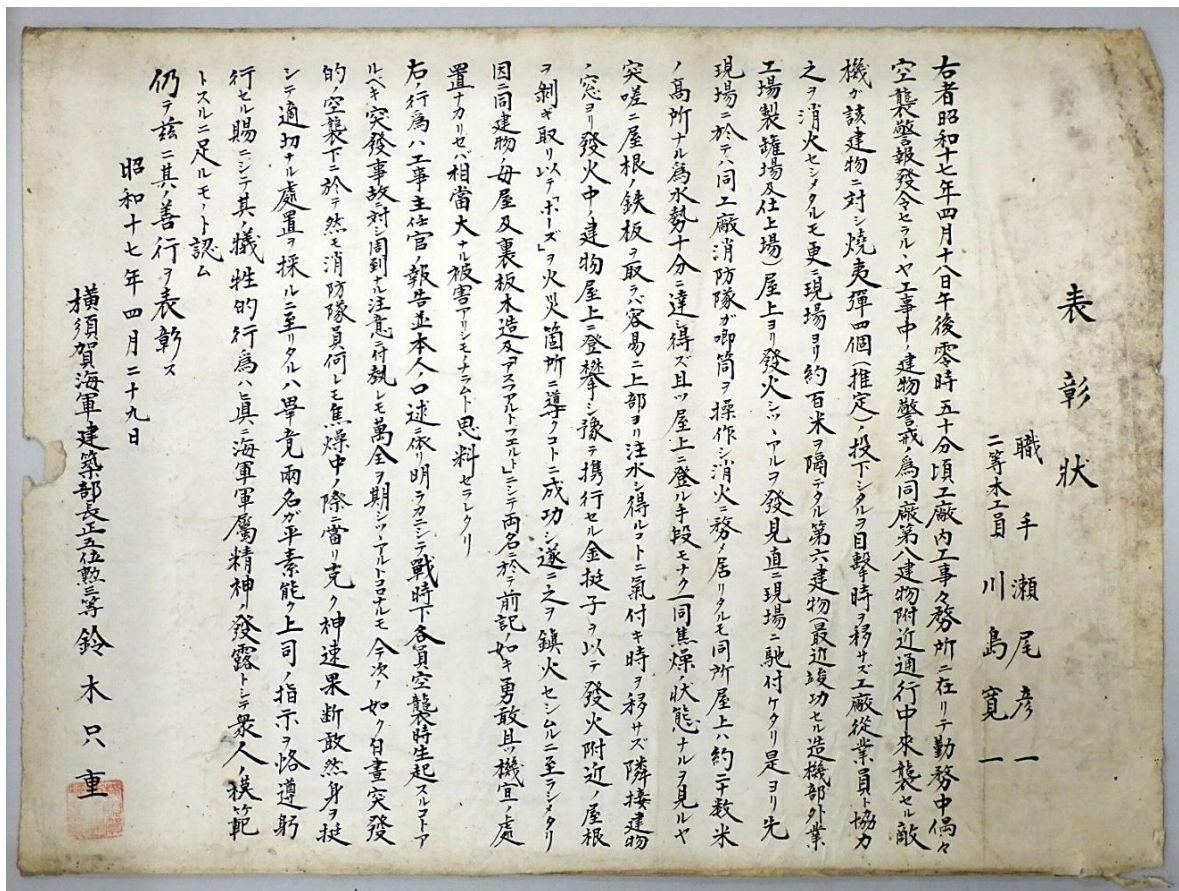 表彰状
職手 瀬尾彦一
二等木工員 川島寛一
右者昭和十七年四月十八日午後零時五十分頃工廠内工事々務所ニ在リテ勤務中偶々
空襲警報發令セラルヽヤ工事中ノ建物警戒ノ爲同廠第八建物附近通行中來襲セル敵
機ガ該建物ニ対シ燒夷彈四個(推定)ノ投下シタルヲ目擊時ヲ移サズ工廠從業員ト協力
之ヲ消火セシメタルモ更ニ現場ヨリ約百米ヲ隔テタル第六建物(最近竣功セル造機部外業
工場製罐場及仕上場)屋上ヨリ發火シツヽアルヲ發見直ニ現場ニ馳付ケタリ是ヨリ先
現場ニ於テハ同工廠消防隊ガ喞筒ヲ操作シ消火ニ務メ居リタルモ同所屋上ハ約二十数米
ノ高所ナル爲水勢十分ニ達シ得ズ且ツ屋上ニ登ル手段モナク一同焦燥ノ状態ナルヲ見ルヤ
突嗟ニ屋根ノ鉄板ヲ取ラバ容易ニ上部ヨリ注水シ得ルコトニ氣付キ時ヲ移サズ隣接建物
ノ窓ヨリ發火中ノ建物屋上ニ登攀シ豫テ携行セル金挺子ヲ以テ發火附近ノ屋根
ヲ剝ギ取リ以テ「ホーズ」ヲ火災箇所ニ導クコトニ成功シ遂ニ之ヲ鎮火セシムルニ至ラシメタリ
因ニ同建物ノ母屋及裏板木造及「アスファルトフェルト」ニシテ両名ニ於テ前記ノ如キ勇敢且ツ機宜ノ處
置ナカリセバ相當大ナル被害アリシモノナラムト思料セラレタリ
右ノ行爲ハ工事主任官ノ報告並本人ノ口述ニ依リ明ラカニシテ戰時下各員空襲時生起スルコトア
ルベキ突發事故ニ対シ周到ナル注意ニ付孰レモ萬全ヲ期シツヽアルトコロナルモ今次ノ如ク白晝突發
的ノ空襲下ニ於テ然モ消防隊員何レモ焦燥中ノ際ニ當リ克ク神速果断敢然身ヲ挺
シテ適切ナル處置ヲ採ルニ至リタルハ畢竟兩名ガ平素能ク上司ノ指示ヲ恪遵躬
行セル賜ニシテ其ノ犠牲的行爲ハ眞ニ海軍軍屬精神ノ發露トシテ衆人ノ模範
トスルニ足ルモノト認ム
仍テ玆ニ其ノ善行ヲ表彰ス
昭和十七年四月二十九日
横須賀海軍建築部長正五位勲三等 鈴木只重